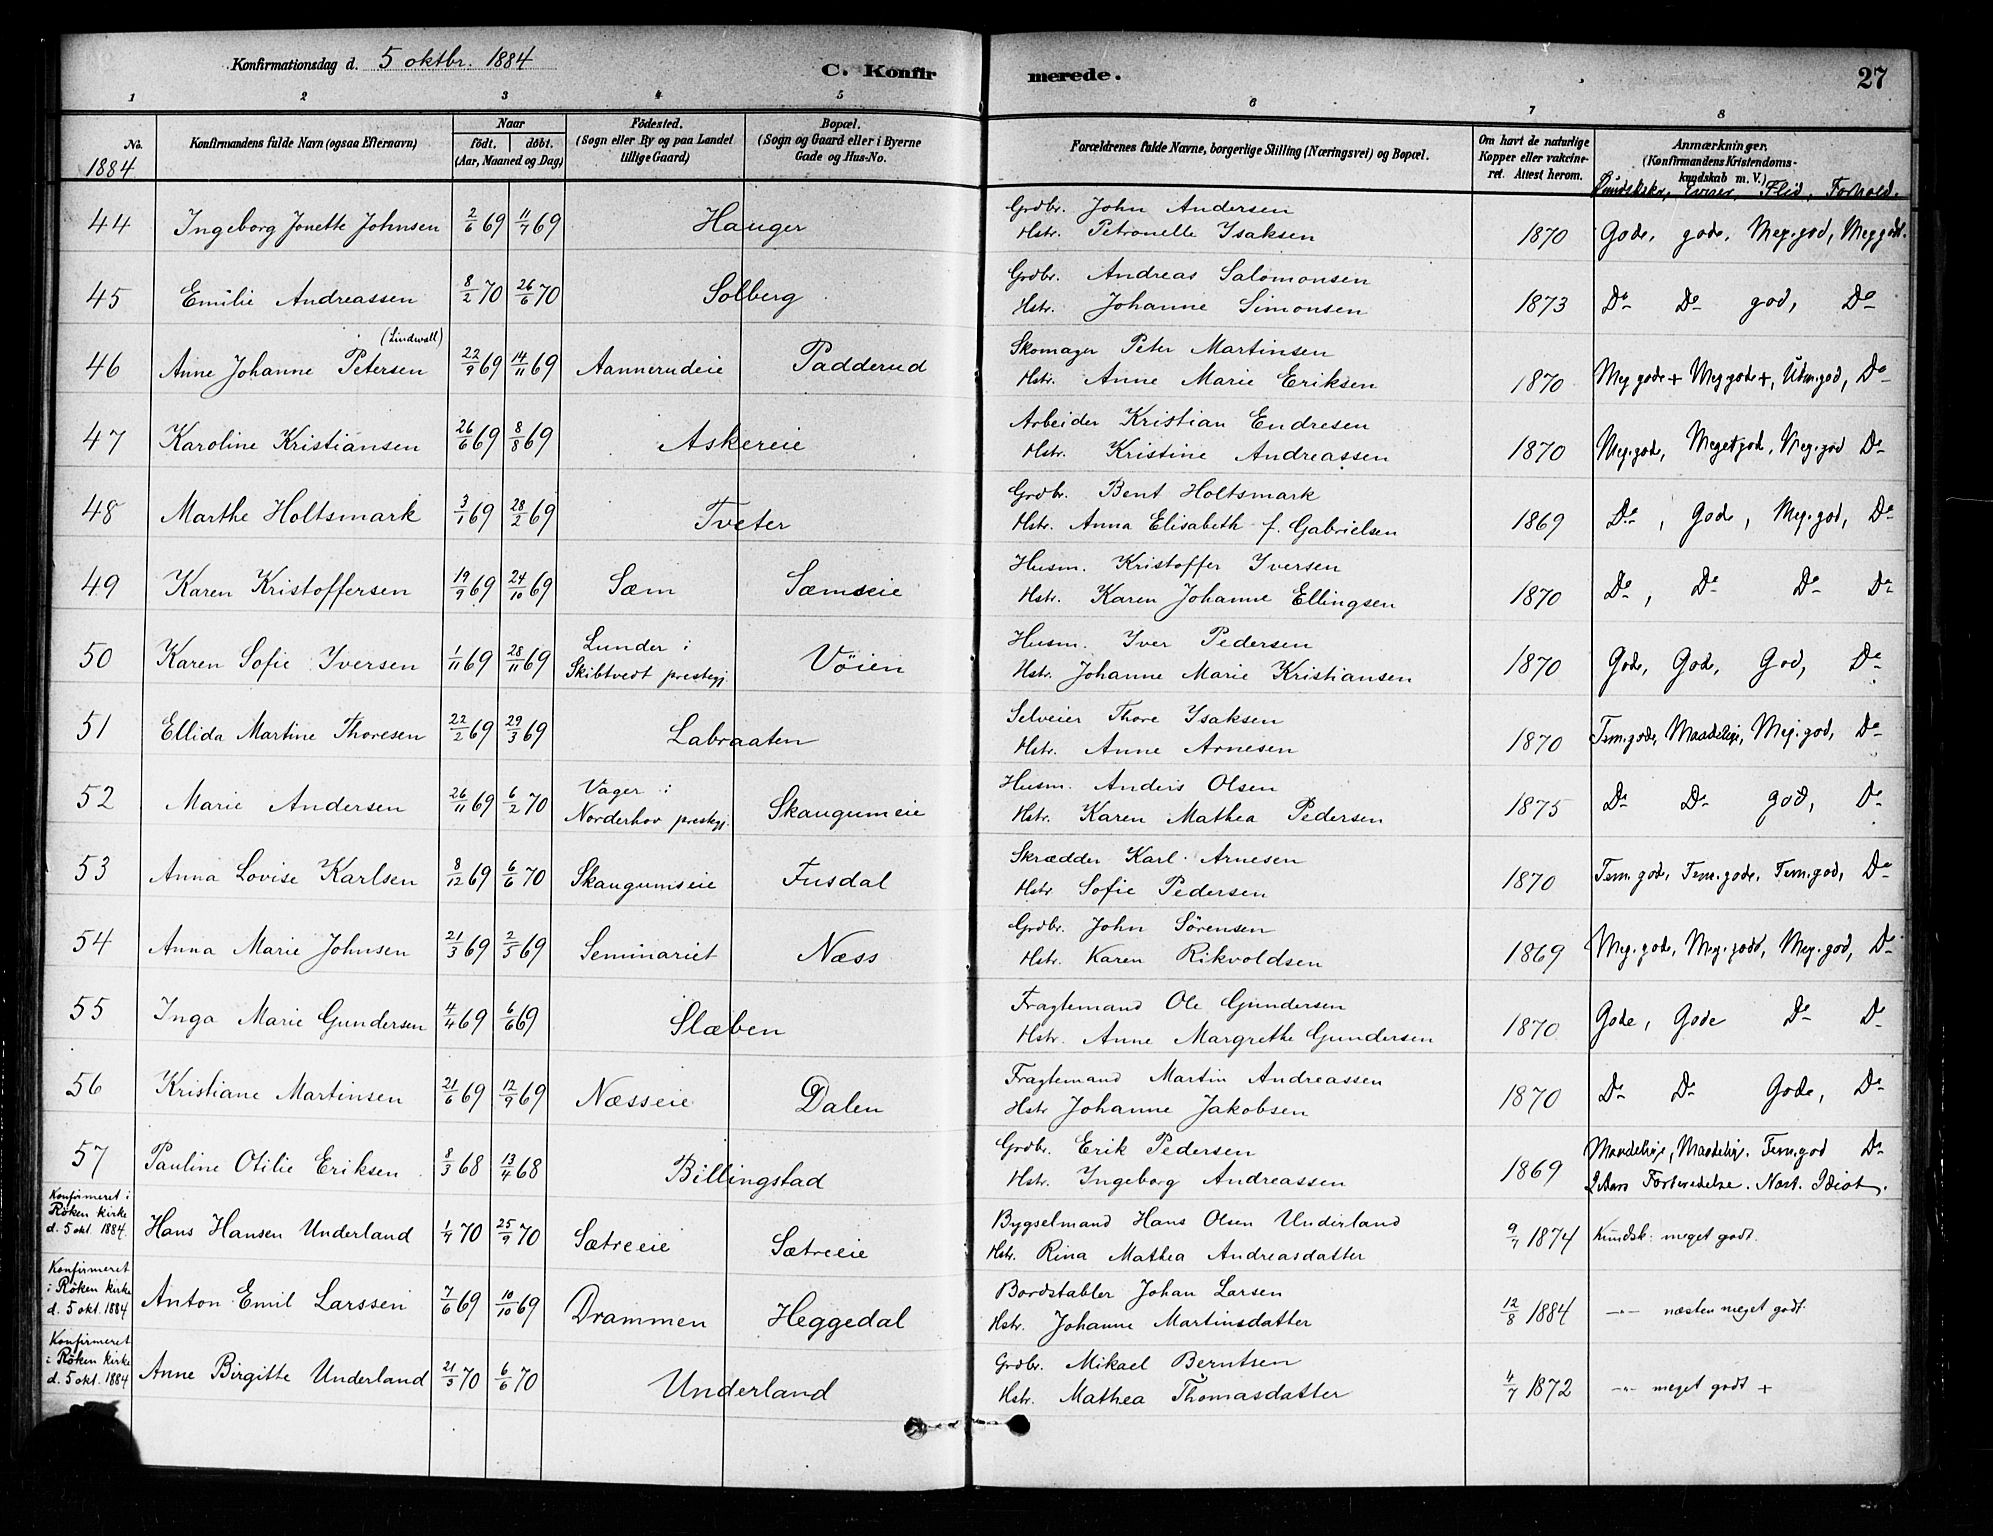 Konfirmationsdag d. 5 oktbr. 1884
C. Konfirmerede.
27
1 2 3 4 5 6 7 8
No. 1884
Konfirmandens fulde Navn (ogsaa Efternavn)
Naar født. døbt. (Aar, Maaned og Dag)
Födested. (Sogn eller By og paa Landet tillige Gaard)
Bopæl. (Sogn og Gaard eller i Byerne Gade og Hus-No.
Forældrenes fulde Navne, borgerlige Stilling (Næringsvei) og Bopæl.
Om havt de naturlige Kopper eller vakcineret. Attest herom.
Anmærkninger. (Konfirmandens Kristendomskundskab m. V.)
Kundskaber, Evner, Flid, Forhold.
44 Ingeborg Jonette Johnsen 2/6 69 11/7 69 Hauger Grdbr. John Andersen 1870 Gode, gode, Meg.god, Meg godt.
Hstr. Petronelle Ysaksen
45 Emilie Andreassen 8/2 70 26/6 70 Solberg Grdbr. Andreas Salomonsen 1873 Do Do god, Do
Hstr. Johanne Simonsen
46 Anne Johanne Petersen (Lindwall) 22/9 69 14/11 69 Aannerudeie Padderud Skomager Peter Martinsen 1870 Meg gode+ Meg gode+, Udm.god, Do
Hstr. Anne Marie Eriksen
47 Karoline Kristiansen 26/6 69 8/8 69 Askereie Arbeider Kristian Endresen 1870 Meg.gode, Meget gode, Meg.god Do
Hstr. Kristine Andreassen
48 Marthe Holtsmark 3/1 69 28/2 69 Tveter Grdbr. Bent Holtsmark 1869 Do, Gode, Meg.god, Do
Hstr. Anna Elisabeth f. Gabrielsen
49 Karen Kristoffersen 19/9 69 24/10 69 Sæm Sæmseie Husm. Kristoffer Yversen 1870 Do, Do Do Do
Hstr. Karen Johanne Ellingsen
50 Karen Sofie Yversen 1/11 69 28/11 69 Lunder i Skibtvedt prestegj. Vöien Husm. Yver Pedersen 1870 Gode, Gode, God, Do
Hstr. Johanne Marie Kristiansen
51 Ellida Martine Thoresen 22/2 69 29/3 69 Labraaten Selveier Thore Ysaksen 1870 Tem.gode, Maadelige, Meg.god, Do
Hstr. Anne Arnesen
52 Marie Andersen 26/11 69 6/2 70 Vager i Norderhov prestegj. Skaugumeie Husm. Anders Olsen 1875 Do Do god, Do
Hstr. Karen Mathea Pedersen
53 Anna Lovise Karlsen 8/12 69 6/6 70 Skaugumseie Fusdal Skrædder Karl Arnesen 1870 Tem.gode, Tem.gode, Tem.god, Do
Hstr Sofie Pedersen
54 Anna Marie Johnsen 21/3 69 2/5 69 Seminariet Næss Grdbr. John Sörensen 1869 Meg.gode, Meg.gode, Meg.god, Do
Hstr. Karen Rikvoldsen
55 Inga Marie Gundersen 4/4 69 6/6 69 Slæben Fragtemand Ole Gundersen 1870 Gode, Gode Do Do
Hstr. Anne Margrethe Gundersen
56 Kristiane Martinsen 21/6 69 12/9 69 Næsseie Dalen Fragtemand Martin Andreassen 1870 Do Do Gode, Do
Hstr Johanne Jakobsen
57 Pauline Otilie Eriksen 8/3 68 13/4 68 Billingstad Grdbr. Erik Pedersen 1869 Maadelige, Maadelige. Tem.god Do
Hstr. Ingeborg Andreassen 2 Aars Forberedelse. Næst. Idiot.
Konfirmeret i Röken kirke d. 5 okt. 1884. Hans Hansen Underland 1/7 70 25/9 70 Sætreeie Sætreeie Bygselmand Hans Olsen Underland 9/7 1874 Kundsk: meget godt.
Hstr. Rina Mathea Andreasdatter
Konfirmeret i Röken kirke d. 5 okt. 1884 Anton Emil Larssen 7/6 69 10/10 69 Drammen Heggedal Bordstabler Johan Larsen 12/8 1884 -"- næsten meget godt.
Hstr. Johanne Martinsdatter
Konfirmeret i Röken kirke d. 5 okt. 1884 Anne Birgitte Underland 21/3 70 6/6 70 Underland Grdbr. Mikael Berntsen 4/7 1872 -"- meget godt +
Hstr. Mathea Thomasdatter